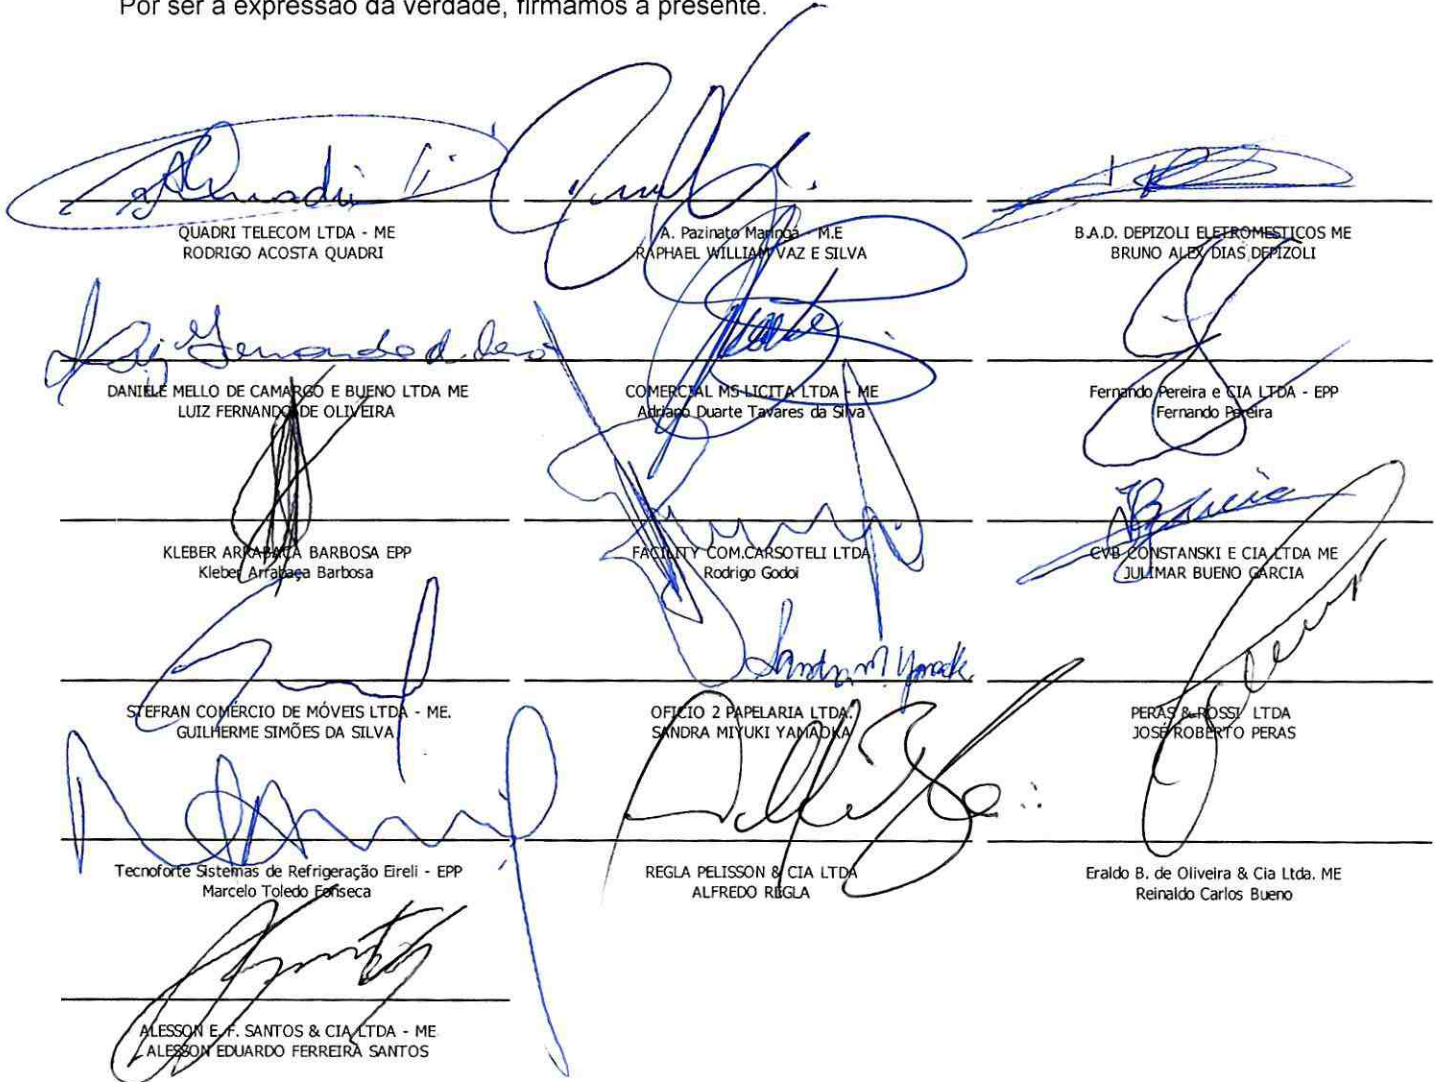 Por ser a expressão da verdade, firmamos a presente.
QUADRI TELECOM LTDA - ME
RODRIGO ACOSTA QUADRI
A. Pazinato Maringá - M.E
RAPHAEL WILLIAM VAZ E SILVA
B.A.D. DEPIZOLI ELETROMESTICOS ME
BRUNO ALEX DIAS DEPIZOLI
DANIELE MELLO DE CAMARGO E BUENO LTDA ME
LUIZ FERNANDO DE OLIVEIRA
COMERCIAL MS LICITA LTDA - ME
Adriano Duarte Tavares da Silva
Fernando Pereira e CIA LTDA - EPP
Fernando Pereira
KLEBER ARRABAÇA BARBOSA EPP
Kleber Arrabaça Barbosa
FACILITY COM.CARSOTELI LTDA
Rodrigo Godoi
CVB CONSTANSKI E CIA LTDA ME
JULIMAR BUENO GARCIA
STEFRAN COMERCIO DE MÓVEIS LTDA - ME.
GUILHERME SIMÕES DA SILVA
OFICIO 2 PAPELARIA LTDA.
SANDRA MIYUKI YAMAOKA
PERAS & ROSSI LTDA
JOSÉ ROBERTO PERAS
Tecnoforte Sistemas de Refrigeração Eireli - EPP
Marcelo Toledo Fonseca
REGLA PELISSON & CIA LTDA
ALFREDO REGLA
Eraldo B. de Oliveira & Cia Ltda. ME
Reinaldo Carlos Bueno
ALESSON E. F. SANTOS & CIA LTDA - ME
ALESSON EDUARDO FERREIRA SANTOS